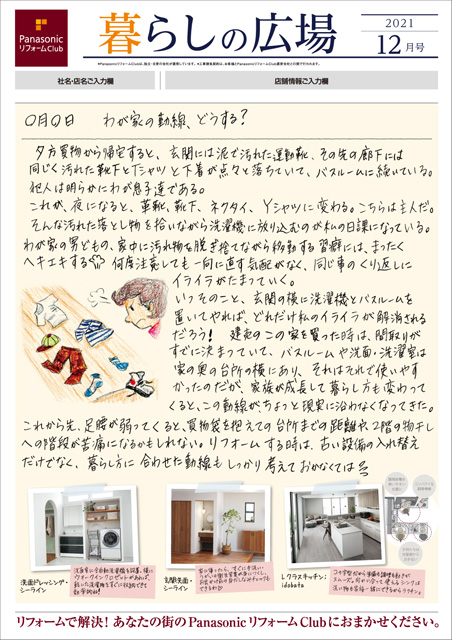 Panasonic
リフォームClub
暮らしの広場
2021
12月号
※PanasonicリフォームClubは、独立・自営の会社が運営しています。※工事請負契約は、お客様とPanasonicリフォームClub運営会社との間で行われます。
社名・店名ご入力欄
店舗情報ご入力欄
○月○日 わが家の動線、どうする?
夕方買物から帰宅すると、玄関には泥で汚れた運動靴、その先の廊下には
同じく汚れた靴下とTシャツと下着が点々と落ちていて、バスルームに続いている。
犯人は明らかにわが息子達である。
これが、夜になると、革靴、靴下、ネクタイ、Yシャツに変わる。こちらは主人だ。
そんな汚れた落とし物を拾いながら洗濯機に放り込むのが私の日課になっている。
わが家の男どもの、家中に汚れ物を脱ぎ捨てながら移動する習癖には、まったく
ヘキエキする 何度注意しても一向に直す気配がなく、同じ事のくり返しに
イライラがたまっていく。
いっそのこと、玄関の横に洗濯機とバスルームを
置いてやれば、どれだけ私のイライラが解消される
だろう! 建売のこの家を買った時は、間取りが
すでに決まっていて、バスルームや洗面・洗濯室は
家の奥の台所の横にあり、それはそれで使いやす
かったのだが、家族が成長して暮らし方も変わって
くると、この動線が、ちょっと現実に沿わなくなってきた。
これから先、足腰が弱ってくると、買物袋を抱えての台所までの距離や、2階の物干し
への階段が苦痛になるかもしれない。リフォームする時は、古い設備の入れ替え
だけでなく、暮らし方に合わせた動線もしっかり考えておかなくては
洗面ドレッシング・
シーライン
玄関洗面・
シーライン
Lクラスキッチン:
idobata
リフォームで解決! あなたの街のPanasonicリフォームClubにおまかせください。